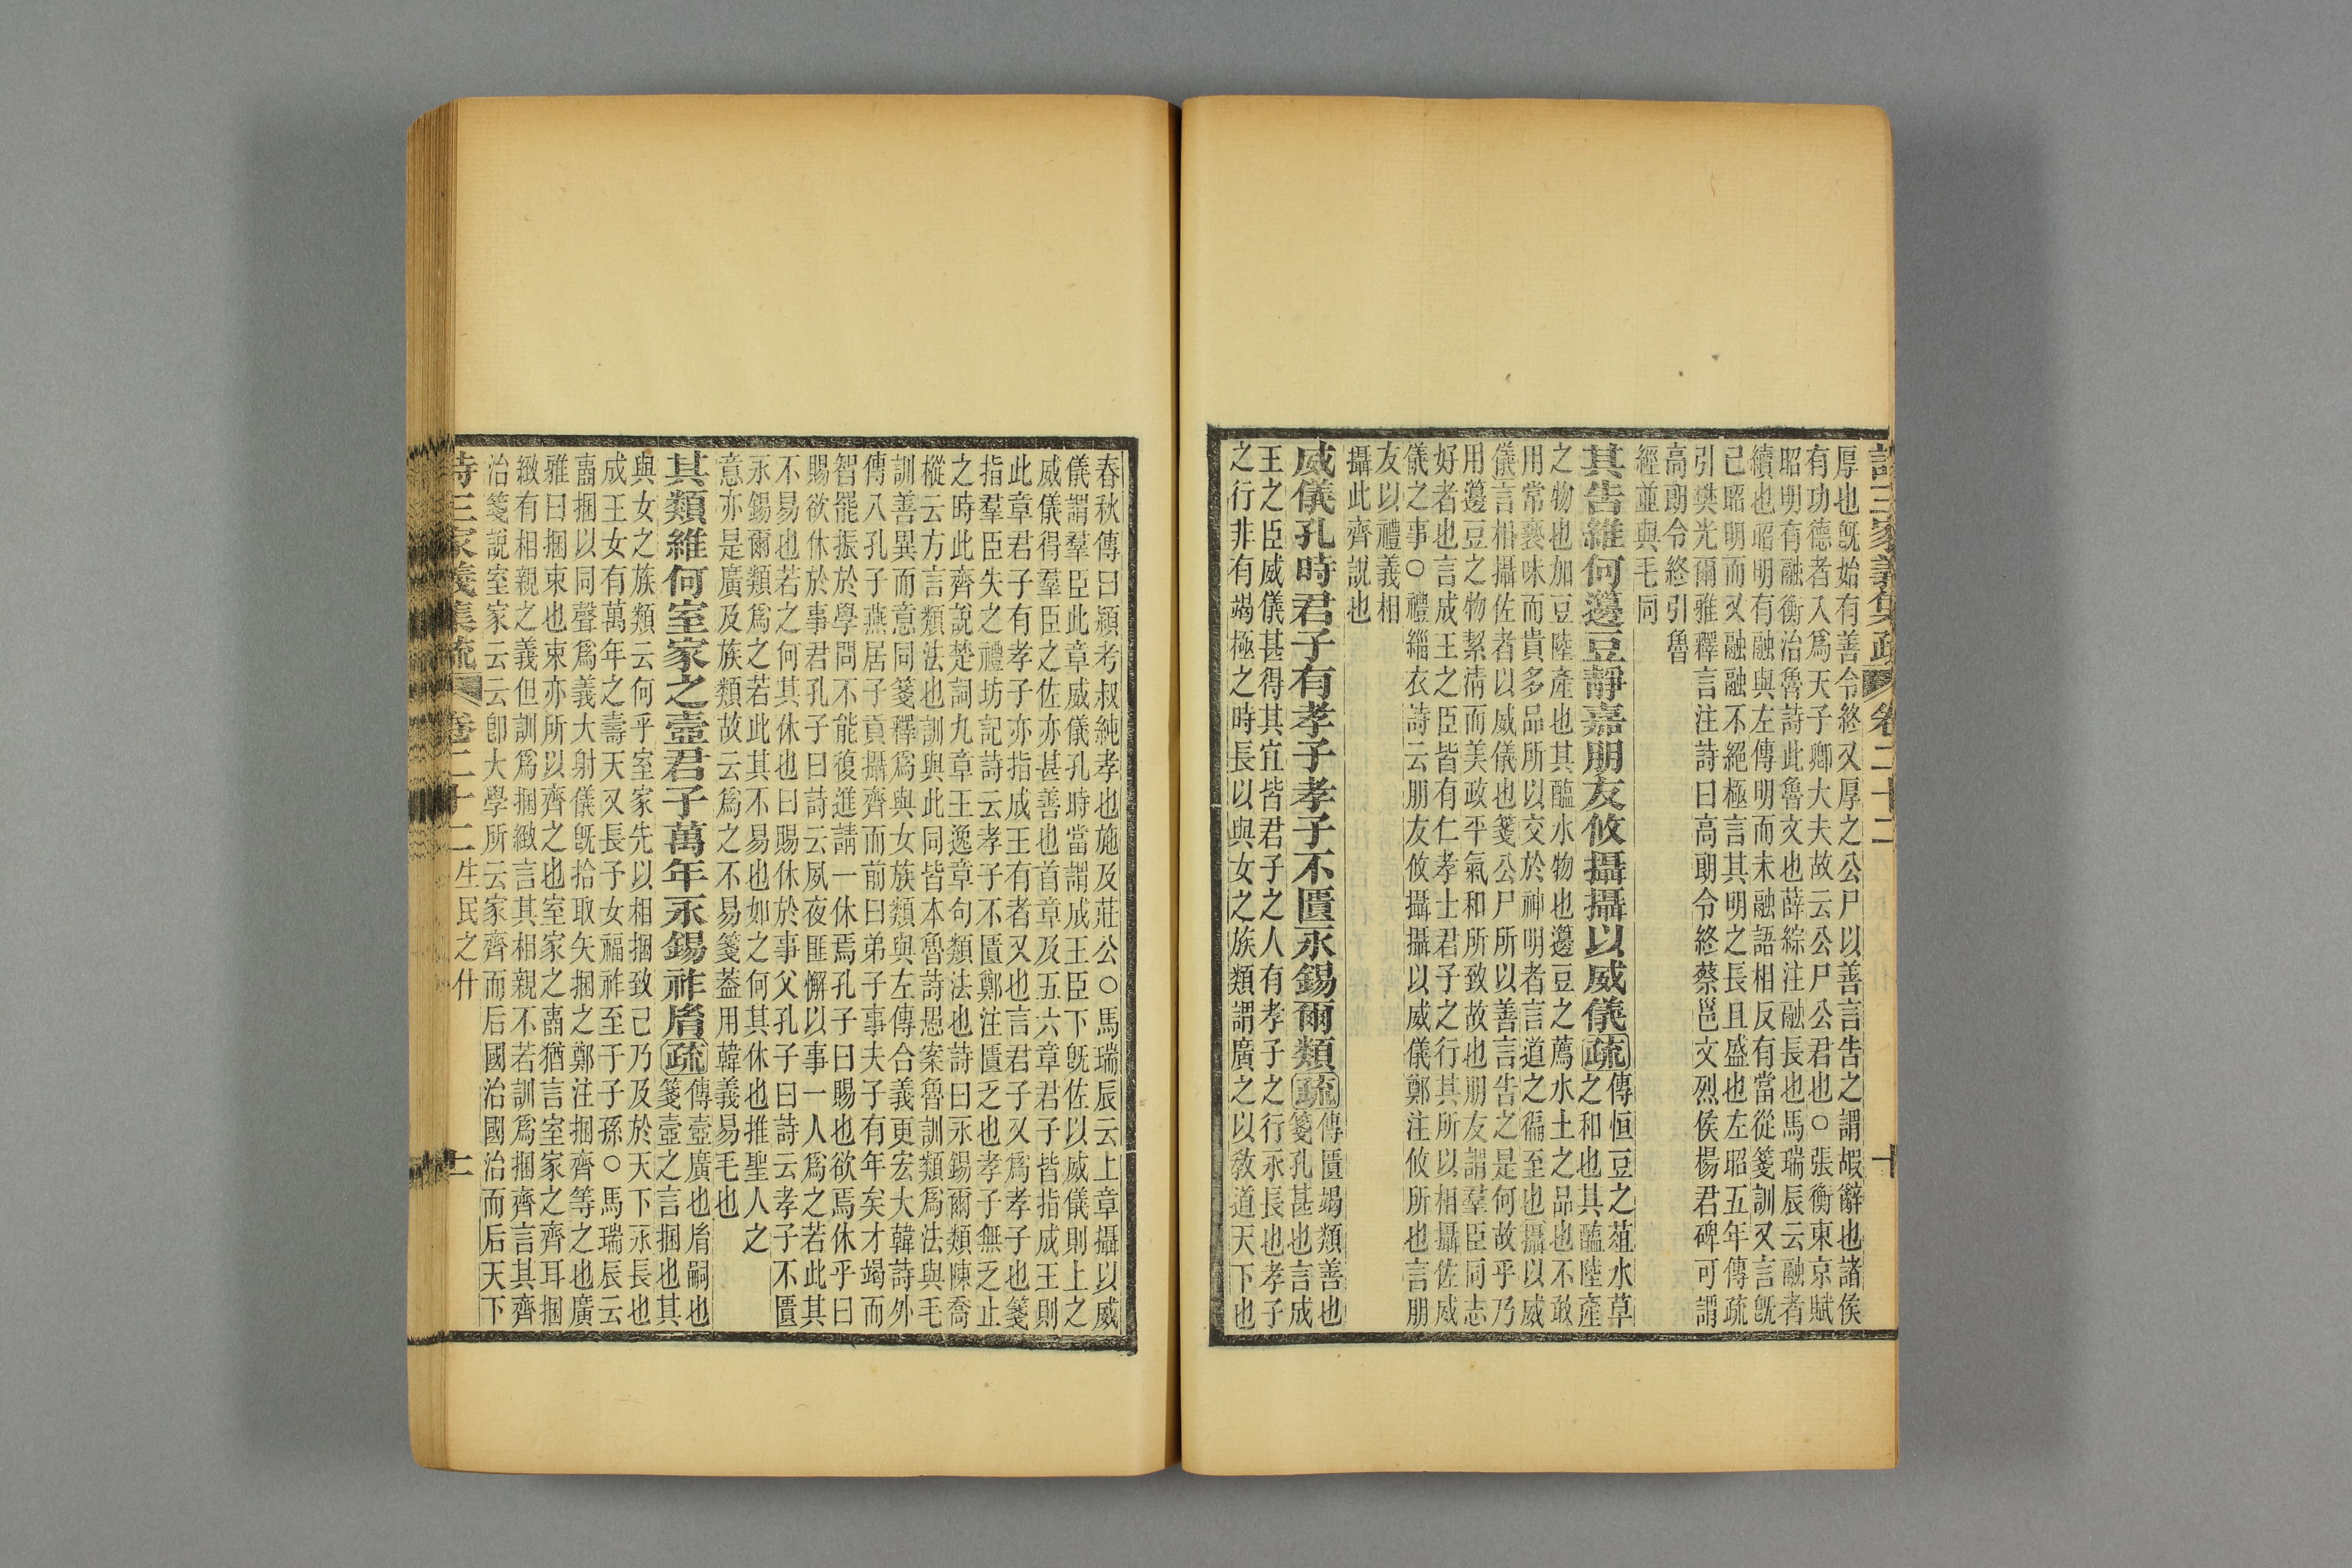 詩三家義集疏 卷二十二 十
厚也旣始有善令終又厚之公尸以善言告之謂嘏辭也諸侯
有功德者入爲天子卿大夫故云公尸公君也○張衡東京賦
昭明有融衡治魯詩此魯文也薛綜注融長也馬瑞辰云融者
續也昭明有融與左傳明而未融語相反有當從箋訓又言旣
已昭明而又融融不絕極言其明之長且盛也左昭五年傳疏
引樊光爾雅釋言注詩曰高朗令終蔡邕文烈侯楊君碑可謂
高朗令終引魯
經並與毛同
其告維何籩豆靜嘉朋友攸攝攝以威儀疏傳恒豆之葅水草
之和也其醢陸產
之物也加豆陸產也其醢水物也籩豆之薦水土之品也不敢
用常褻味而貴多品所以交於神明者言道之徧至也攝以威
儀言相攝佐者以威儀也箋公尸所以善言告之是何故乎乃
用籩豆之物絜清而美政平氣和所致故也朋友謂羣臣同志
好者也言成王之臣皆有仁孝士君子之行其所以相攝佐威
儀之事○禮緇衣詩云朋友攸攝攝以威儀鄭注攸所也言朋
友以禮義相
攝此齊說也
威儀孔時君子有孝子孝子不匱永錫爾類疏傳匱竭類善也
箋孔甚也言成
王之臣威儀甚得其宜皆君子之人有孝子之行永長也孝子
之行非有竭極之時長以與女之族類謂廣之以敎道天下也
春秋傳曰潁考叔純孝也施及莊公○馬瑞辰云上章攝以威
儀謂羣臣此章威儀孔時當謂成王臣下旣佐以威儀則上之
威儀得羣臣之佐亦甚善也首章及五六章君子皆指成王則
此章君子有孝子亦指成王有者又也言君子又爲孝子也箋
指羣臣失之禮坊記詩云孝子不匱鄭注匱乏也孝子無乏止
之時此齊說楚詞九章王逸章句類法也詩曰永錫爾類陳喬
樅云方言類法也訓與此同皆本魯詩愚案魯訓類爲法與毛
訓善異而意同箋釋爲與女族類與左傳合義更宏大韓詩外
傳八孔子燕居子貢攝齊而前曰弟子事夫子有年矣才竭而
智罷振於學問不能復進請一休焉孔子曰賜也欲焉休乎曰
賜欲休於事君孔子曰詩云夙夜匪懈以事一人爲之若此其
不易也若之何其休也曰賜休於事父孔子曰詩云孝子不匱
永錫爾類爲之若此其不易也如之何其休也推聖人之
意亦是廣及族類故云爲之不易箋蓋用韓義易毛也
其類維何室家之壼君子萬年永錫祚胤疏傳壼廣也胤嗣也
箋壼之言捆也其
與女之族類云何乎室家先以相捆致己乃及於天下永長也
成王女有萬年之壽天又長子女福祚至于子孫○馬瑞辰云
壼捆以同聲爲義大射儀旣拾取矢捆之鄭注捆齊等之也廣
雅曰捆束也束亦所以齊之也室家之壼猶言室家之齊耳捆
緻有相親之義但訓爲捆緻言其相親不若訓爲捆齊言其齊
治箋說室家云云卽大學所云家齊而后國治國治而后天下
詩三家義集疏 卷二十二 生民之什 十一